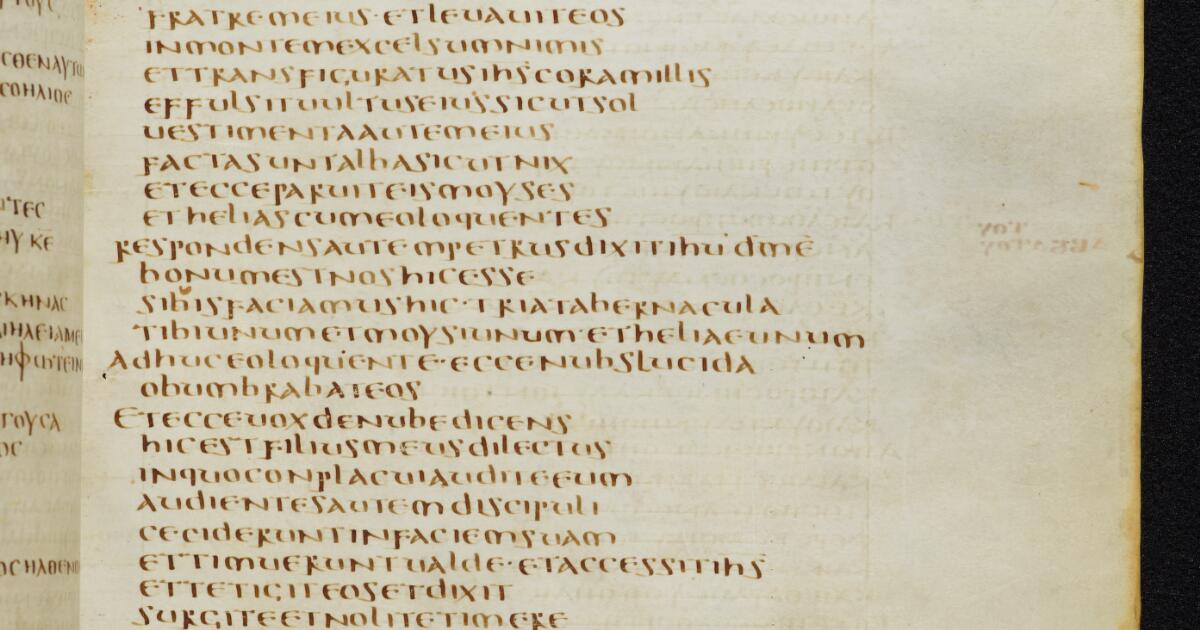 FRATREMEIUS·ETLEUAUITEOS
INMONTEMEXCELSUMNIMIS
ETTRANSFIGURATUSIHSCORAMILLIS
EFFULSITUULTUSEIUSSICUTSOL
UESTIMENTAAUTEMEIUS
FACTASUNTALBASICUTNIX
ETECCEPARUITEISMOYSES
ETHELIASCUMEOLOQUENTES
RESPONDENSAUTEMPETRUSDIXITIHU·DME
BONUMESTNOSHICESSE
SIBISFACIAMUSHIC·TRIATABERNACULA
TIBIUNUMETMOYSIUNUM·ETHELIAEUNUM
ADHUCEOLOQUENTE·ECCENUBSLUCIDA
OBUMBRABATEOS
ETECCEUOXDENUBEDICENS
HICESTFILIUSMEUSDILECTUS
INQUOCONPLACUIAUDITEEUM
AUDIENTESAUTEMDISCIPULI
CECIDERUNTINFACIEMSUAM
ETTIMUERUNTUALDE·ETACCESSITIHS
ETTETIGITEOSETDIXIT
SURGITEETNOLITETIMERE